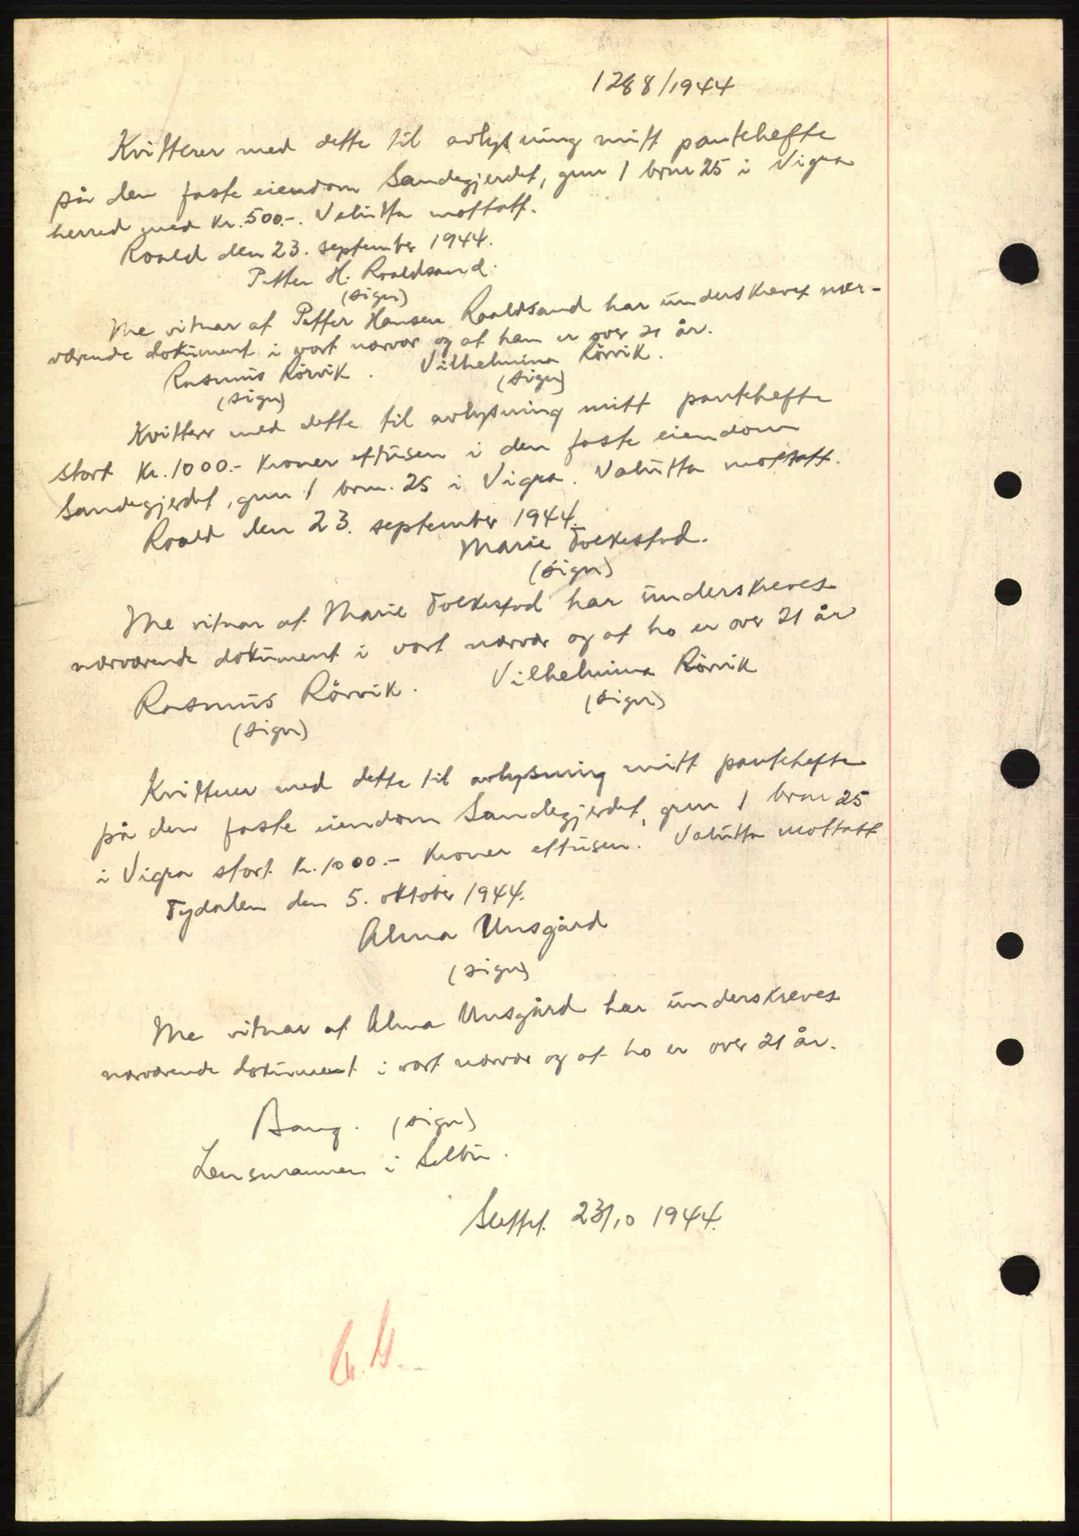 1288/1944
Kvitterer med dette til avlysning mitt pantehefte
på den faste eiendom Sandegjerdet, gnr 1 brnr 25 i Vigra
herred med kr. 500.-. Valutta mottatt.
Roald den 23. september 1944.
Petter H. Roaldsand.
(sign)
Me vitnar at Petter Hansen Roaldsand har underskrevet nær-
værende dokument i vort nærvær og at han er over 21 år.
Rasmus Rörvik. Vilhelmina Rörvik.
(sign) (sign)
Kvitterer med dette til avlysning mitt pantehefte
stort kr. 1000.- kroner ettusen i den faste eiendom
Sandegjerdet, gnr 1 brnr. 25 i Vigra. Valutta mottatt.
Roald den 23. september 1944.
Marie Folkestad.
(sign)
Me vitnar at Marie Folkestad har underskrevet
nærværende dokument i vort nærvær og at ho er over 21 år
Rasmus Rörvik. Vilhelmina Rörvik
(sign) (sign)
Kvitterer med dette til avlysning mitt pantehefte
på den faste eiendom Sandegjerdet, gnr 1 brnr 25
i Vigra stort kr. 1000.- kroner ettusen. Valutta mottatt
Tydalen den 5. oktober 1944.
Alma Unsgård
(sign)
Me vitnar at Alma Unsgård har underskrevet
nærværende dokument i vort nærvær og at ho er over 21 år.
Bang. (sign)
Lensmannen i Selbu.
Slettet 23/10 1944.